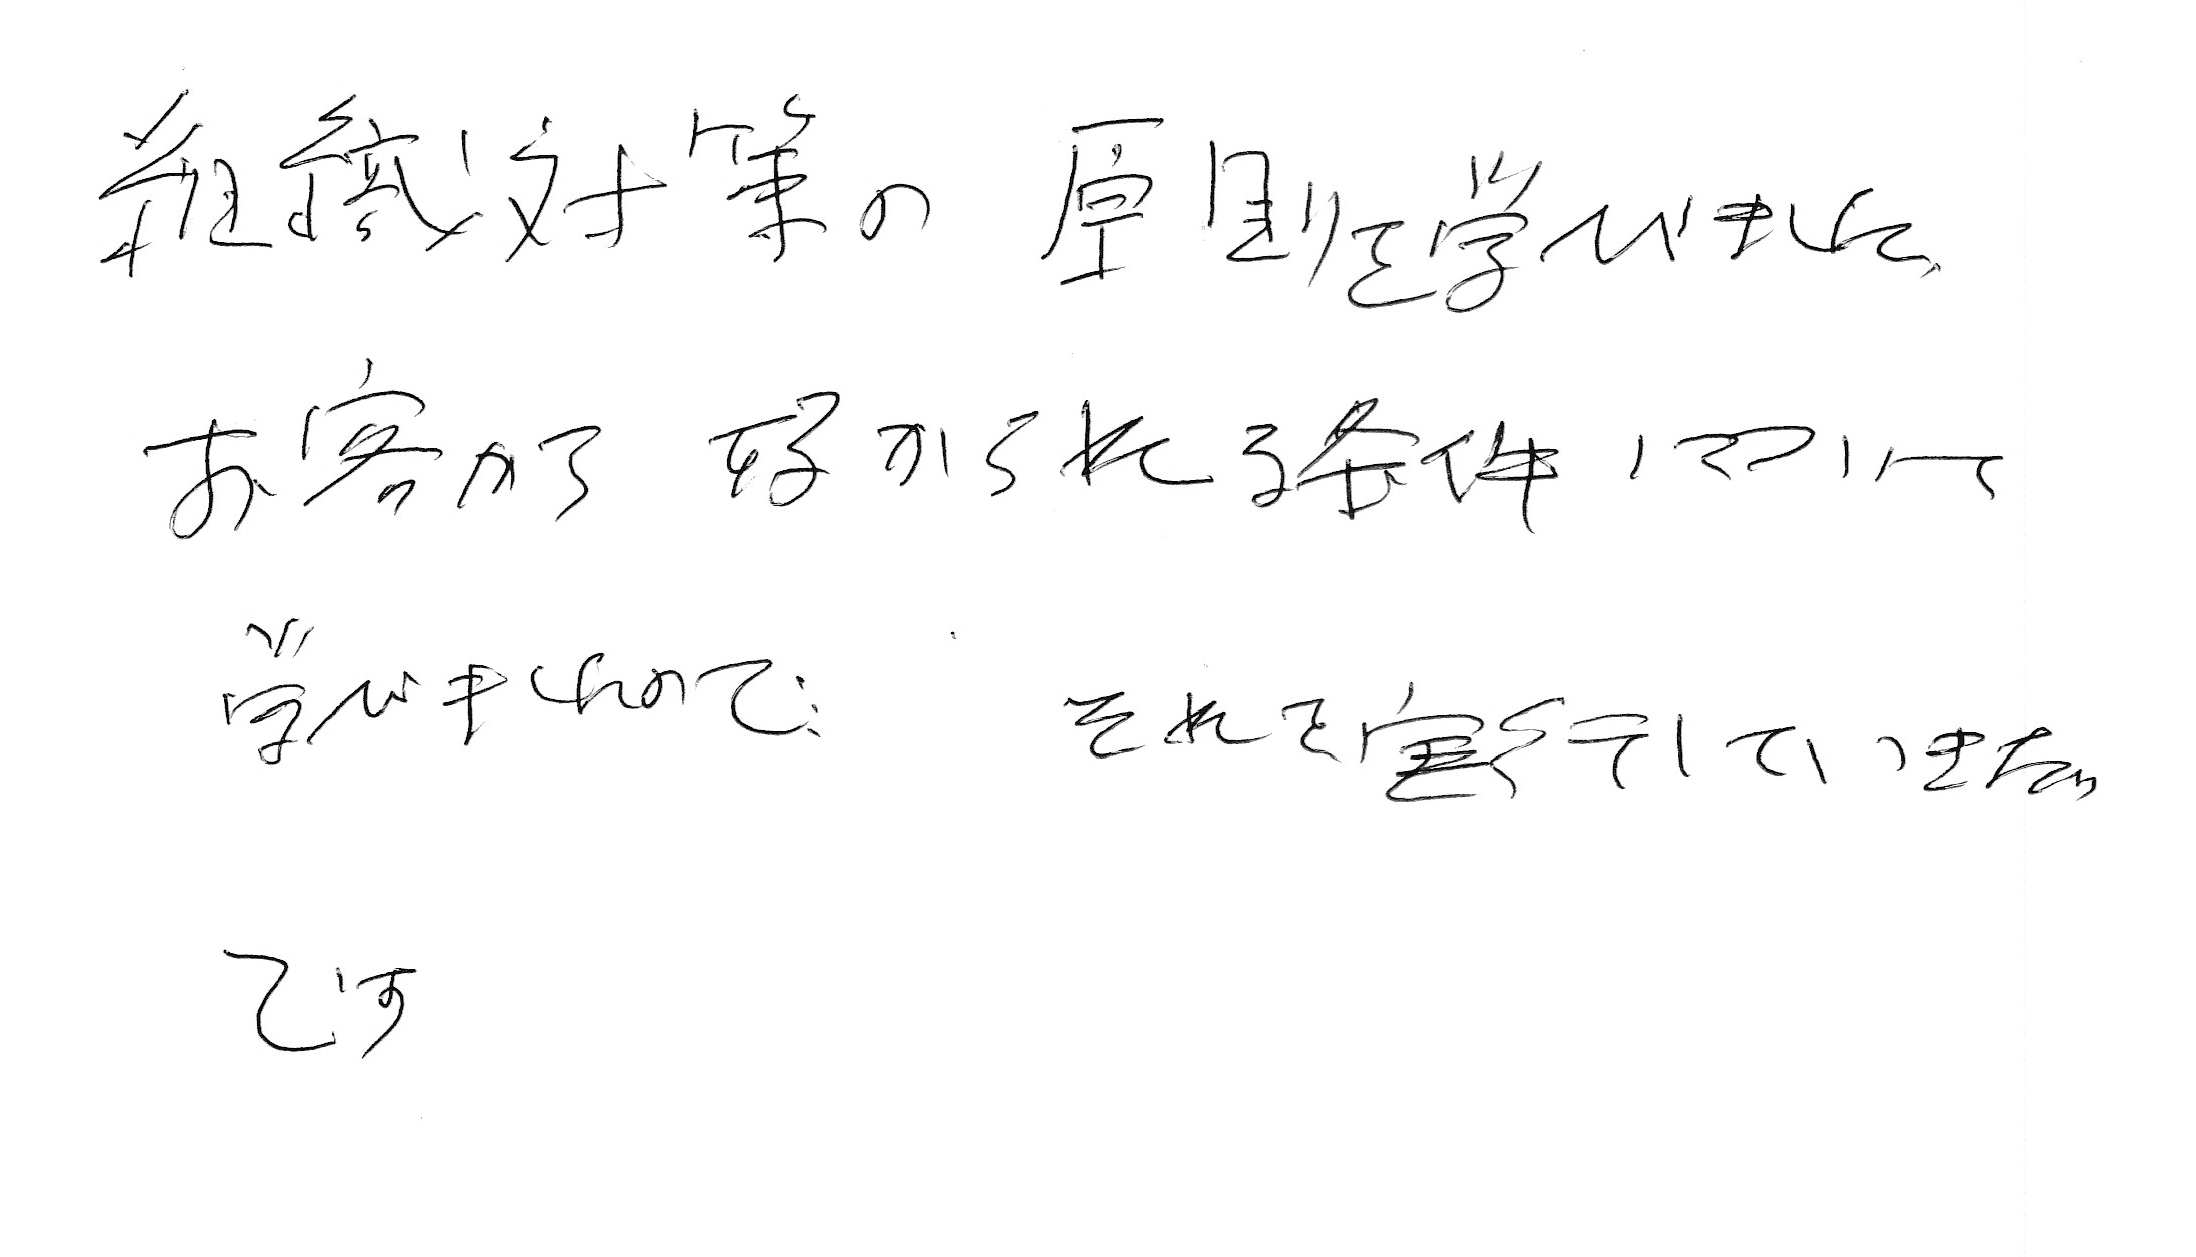 組織対策の原則を学びました、
お客から好かられる条件について
学びましたので、それを実行していきたい
です